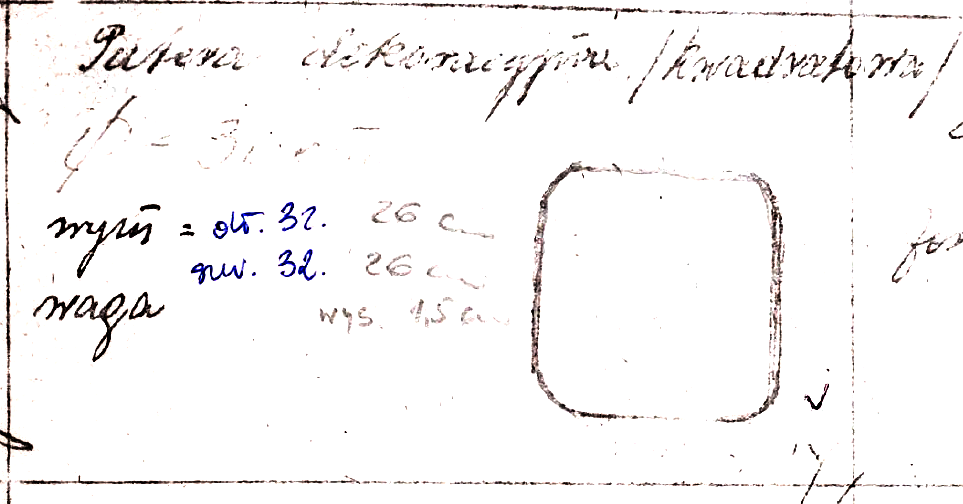 Patera dekoracyjna /kwadratowa/
ϕ = 3
wym = dł. 32. 26 cm
szer. 32. 26 cm
waga wys. 1,5 cm